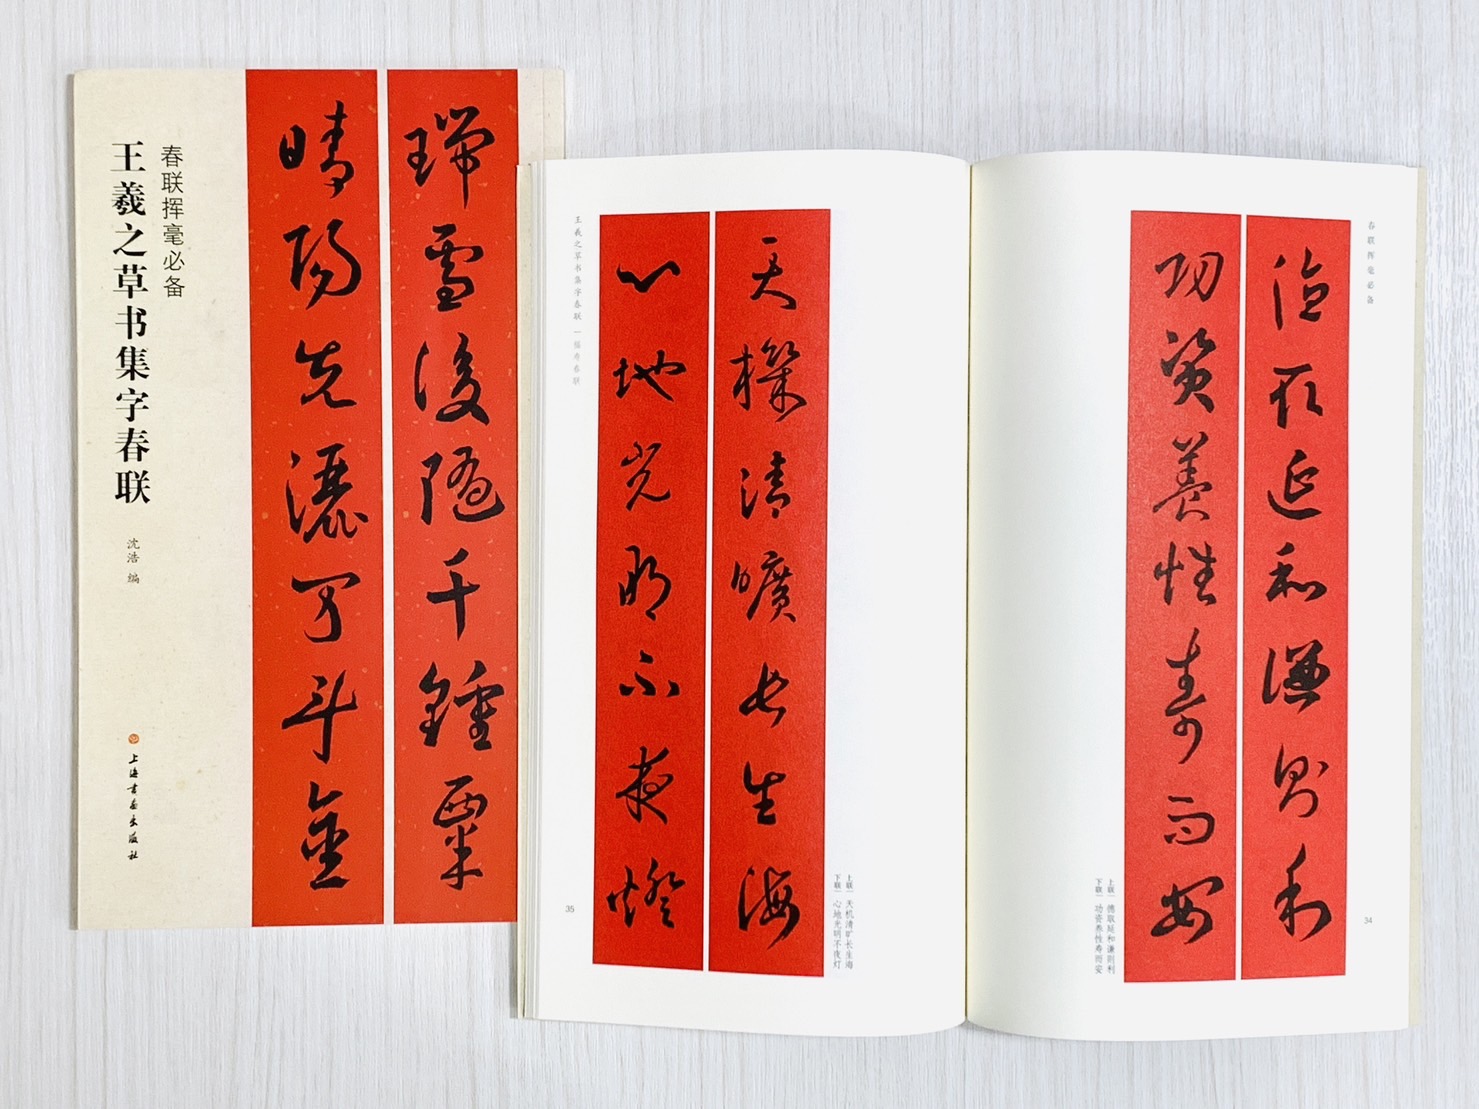 春联挥毫必备
王羲之草书集字春联
沈浩 编
上海书画出版社
瑞雪後随千鍾粟
晴陽先灑万斗金
春联挥毫必备
德取延和謙則利
功資養性壽而安
上联｜德取延和谦则利
下联｜功资养性寿而安
34
天機清曠長生海
心地光明不夜燈
上联｜天机清旷长生海
下联｜心地光明不夜灯
王羲之草书集字春联｜福寿春联
35